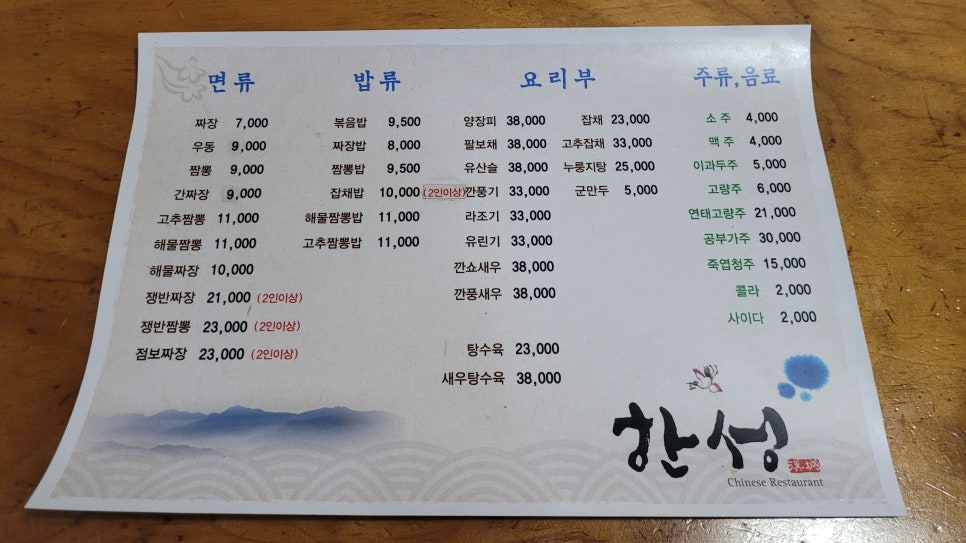 면류
짜장 7,000
우동 9,000
짬뽕 9,000
간짜장 9,000
고추짬뽕 11,000
해물짬뽕 11,000
해물짜장 10,000
쟁반짜장 21,000 (2인이상)
쟁반짬뽕 23,000 (2인이상)
점보짜장 23,000 (2인이상)
밥류
볶음밥 9,500
짜장밥 8,000
짬뽕밥 9,500
잡채밥 10,000 (2인이상)
해물짬뽕밥 11,000
고추짬뽕밥 11,000
요리부
양장피 38,000
팔보채 38,000
유산슬 38,000
깐풍기 33,000
라조기 33,000
유린기 33,000
깐쇼새우 38,000
깐풍새우 38,000
탕수육 23,000
새우탕수육 38,000
잡채 23,000
고추잡채 33,000
누룽지탕 25,000
군만두 5,000
주류,음료
소주 4,000
맥주 4,000
이과두주 5,000
고량주 6,000
연태고량주 21,000
공부가주 30,000
죽엽청주 15,000
콜라 2,000
사이다 2,000
한성
漢城
Chinese Restaurant